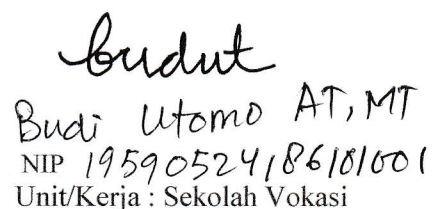 budut
Budi Utomo AT, MT
NIP 19590524186101001
Unit/Kerja : Sekolah Vokasi